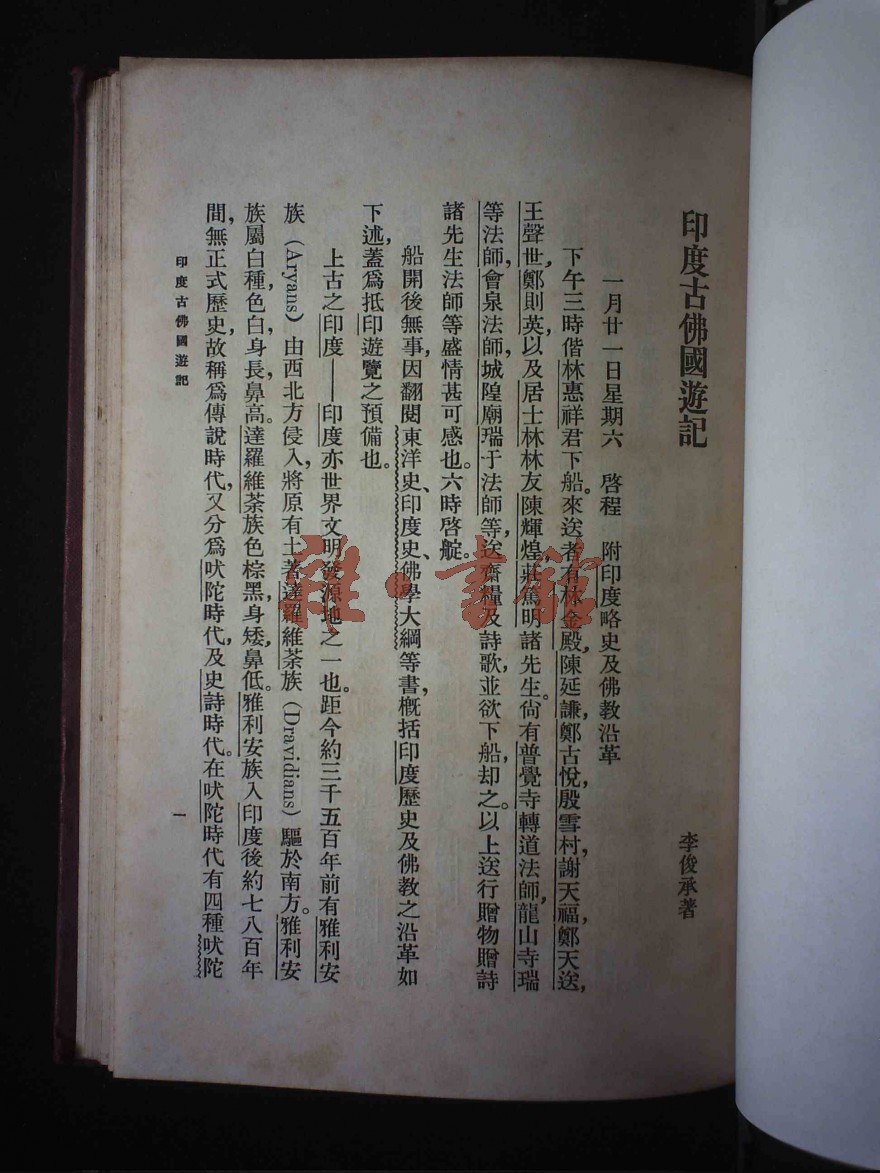 印度古佛國遊記
李俊承著
一月廿一日星期六　啓程　附印度略史及佛教沿革
下午三時偕林惠祥君下船。來送者有林金殿，陳延謙，鄭古悅，殷雪村，謝天福，鄭天送，
王聲世，鄭則英，以及居士林林友陳輝煌，莊篤明諸先生。尙有普覺寺轉道法師，龍山寺瑞
等法師，會泉法師，城隍廟瑞于法師等，送齋糧及詩歌，並欲下船，却之。以上送行贈物贈詩
諸先生法師等盛情甚可感也。六時啓艇。
船開後無事，因翻閱東洋史、印度史、佛學大綱等書，概括印度歷史及佛教之沿革如
下述，蓋爲抵印遊覽之預備也。
上古之印度——印度亦世界文明發源地之一也。距今約三千五百年前有雅利安
族（Aryans）由西北方侵入，將原有土著達羅維荼族（Dravidians）驅於南方。雅利安
族屬白種，色白，身長，鼻高。達羅維荼族色棕黑，身矮，鼻低。雅利安族入印度後約七八百年
間，無正式歷史，故稱爲傳說時代，又分爲吠陀時代，及史詩時代。在吠陀時代有四種吠陀
印度古佛國遊記
一
雜·書館